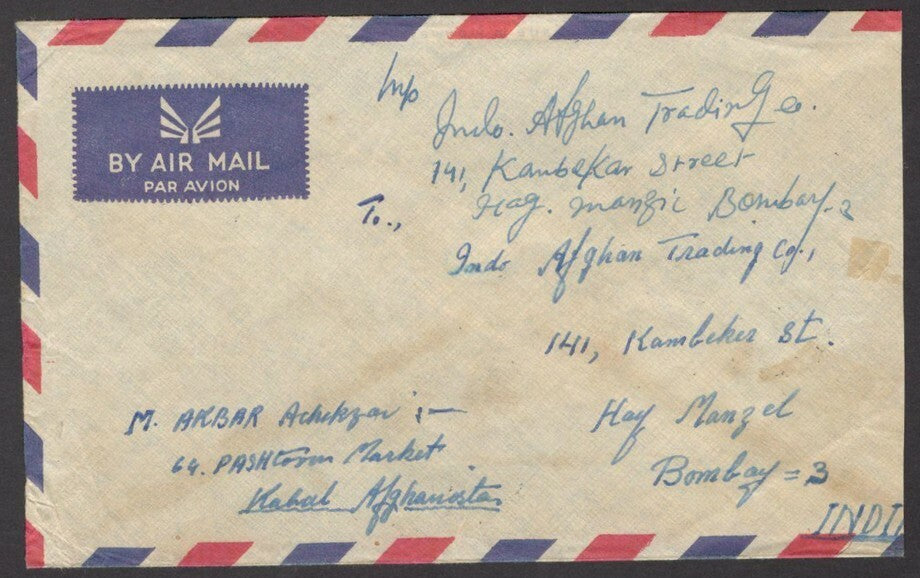 BY AIR MAIL
PAR AVION
M/s
Indo. Afghan Trading Co.
141, Kambekar Street
Hag. Manzil Bombay-2
To.,
Indo Afghan Trading Co.,
141, Kambeker St.
Haf Manzel
Bombay = 3
INDI
M. AKBAR Achekzai :-
64. PASHtoon Market
Kabul Afghanistan